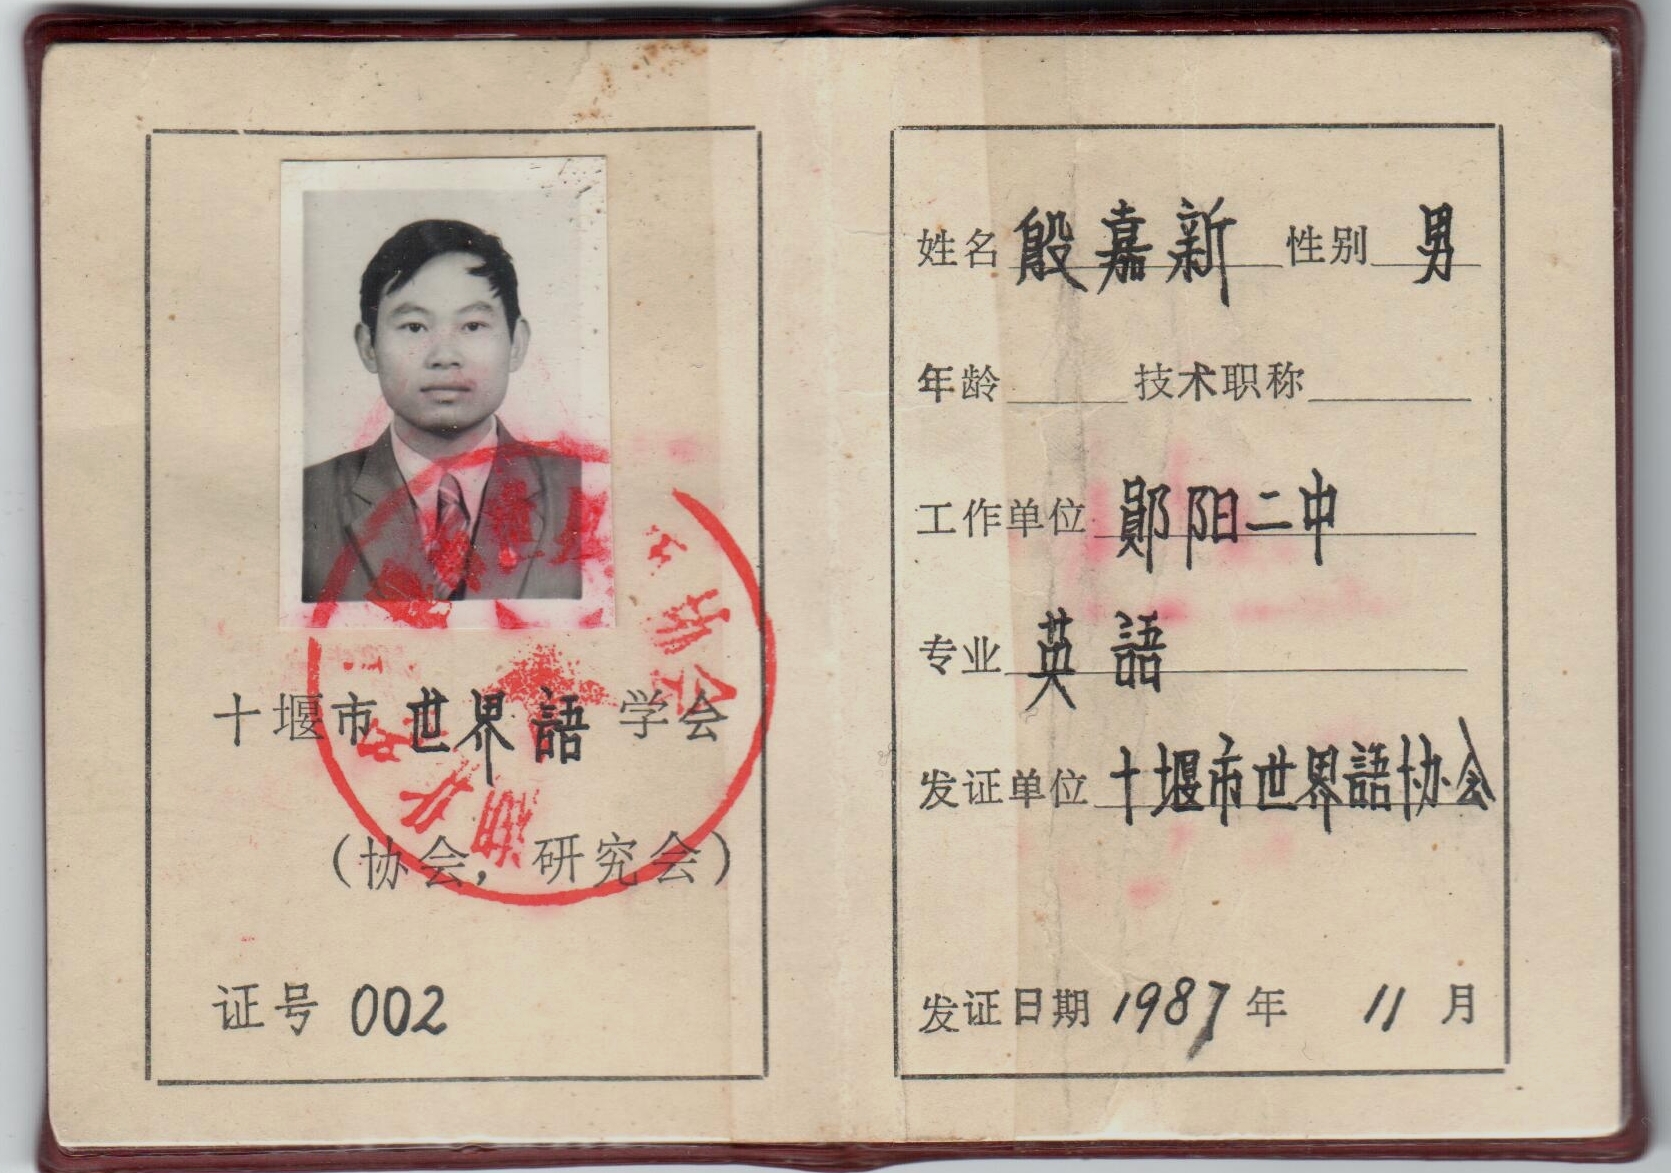 十堰市世界語学会
（协会，研究会）
证号 002
姓名 殷嘉新 性别 男
年龄 技术职称
工作单位 郧阳二中
专业 英語
发证单位 十堰市世界語协会
发证日期 1987 年 11 月